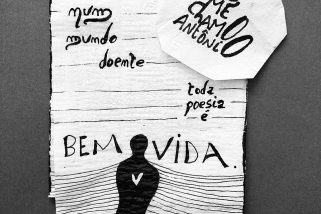 num
mundo
doente
toda
poesia
é
BEM VIDA.
ME
CHAMO
ANTÔNIO